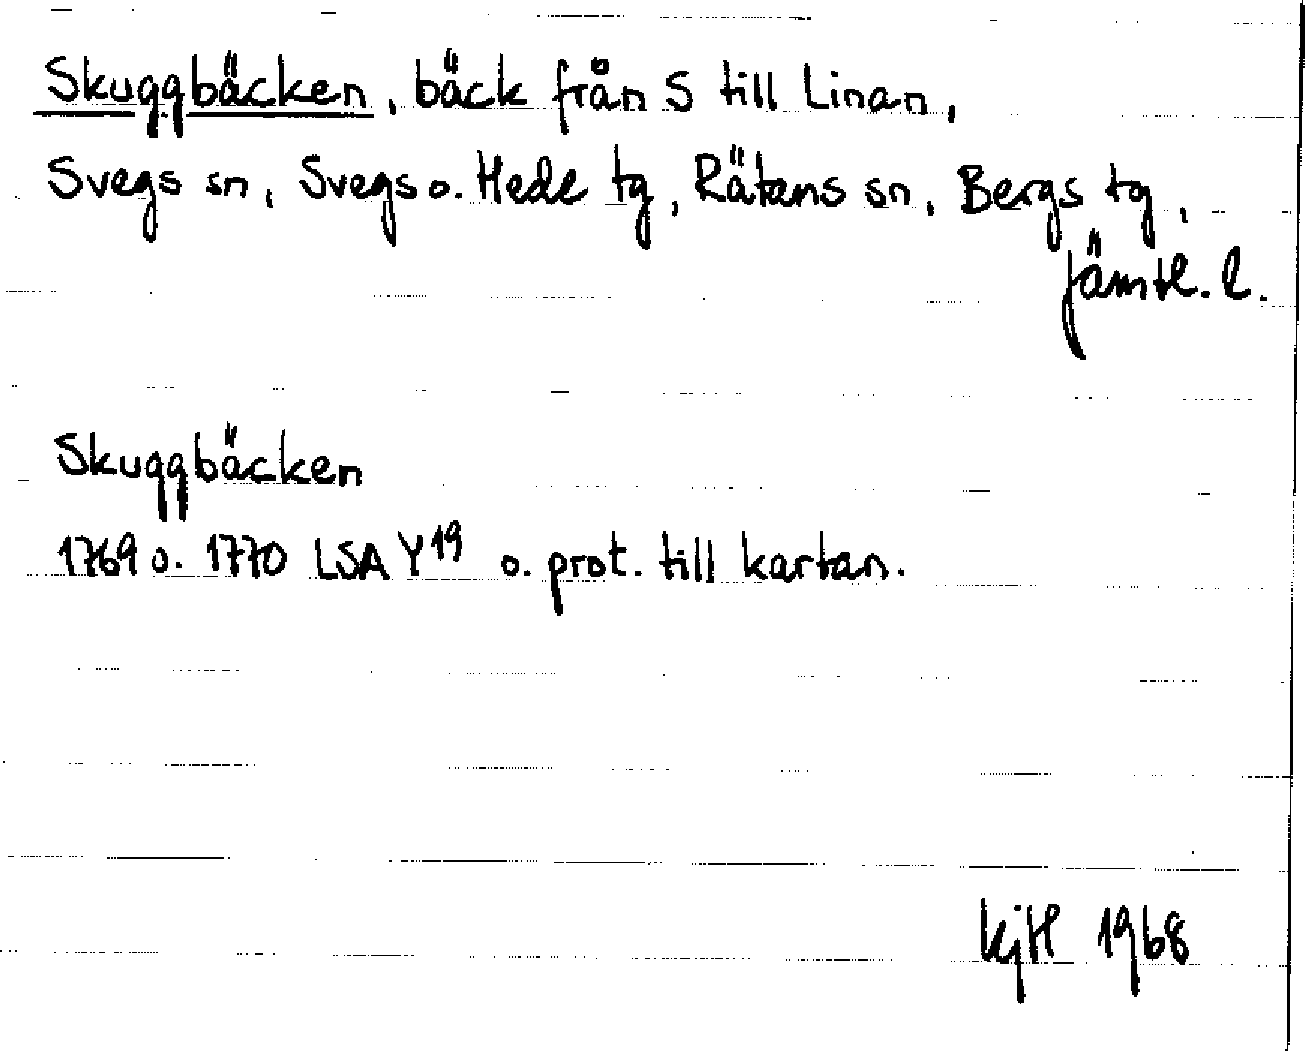 Skuggbäcken, bäck från S till Linan,
Svegs sn, Svegs o. Hede tg, Rätans sn, Bergs tg,
Jämtl. l.
Skuggbäcken
1769 o. 1770 LSA Y19 o. prot. till kartan.
KjH 1968